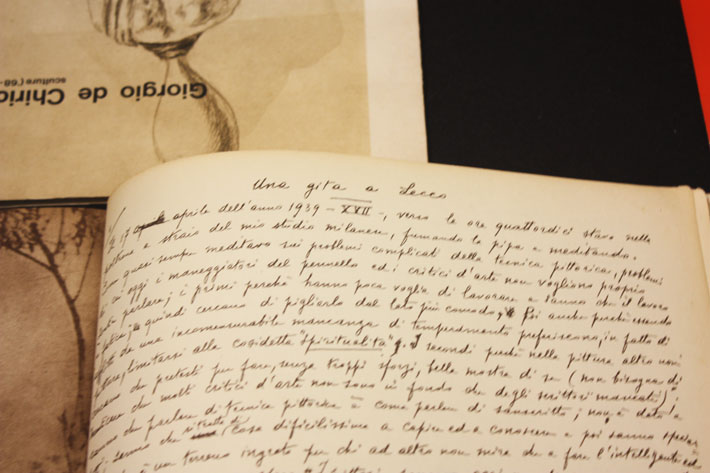 Giorgio de Chiric
sculture ('68-
Una gita a Lecco
17 aprile aprile dell'anno 1939 - XVII -, verso le ore quattordici stavo nella
a sdraio del mio studio milanese, fumando la pipa e meditando.
quasi sempre meditavo sui problemi complicati della tecnica pittorica, problemi
cui oggi i maneggiatori del pennello ed i critici d'arte non vogliono proprio
parlare; i primi perchè hanno poca voglia di lavorare e sanno che il lavoro
e quindi cercano di pigliarlo dal lato più comodo, Poi anche perchè essendo
da una incommensurabile mancanza di temperamento preferiscono, in fatto di
pittura, limitarsi alla cosidetta "spiritualità". I secondi perchè nella pittura altro non
che pretesti per fare, senza troppi sforzi, bella mostra di se (non bisogna di-
che molti critici d'arte non sono in fondo che degli scrittori mancati).
che parlare di tecnica pittorica è come parlare di sanscritto; non è dato a
che si tratta di cosa dificilissima a capire ed a conoscere e poi sanno
è un terreno ingrato per chi ad altro non mira che a fare l'intelligente ed